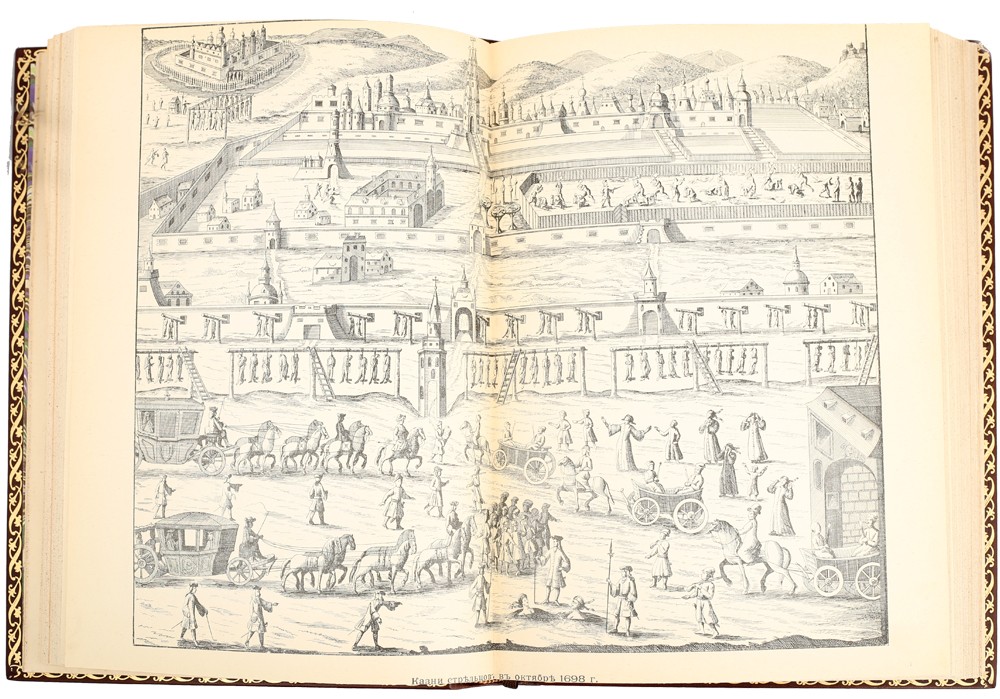 Казни стрѣльцовъ въ октябрѣ 1698 г.